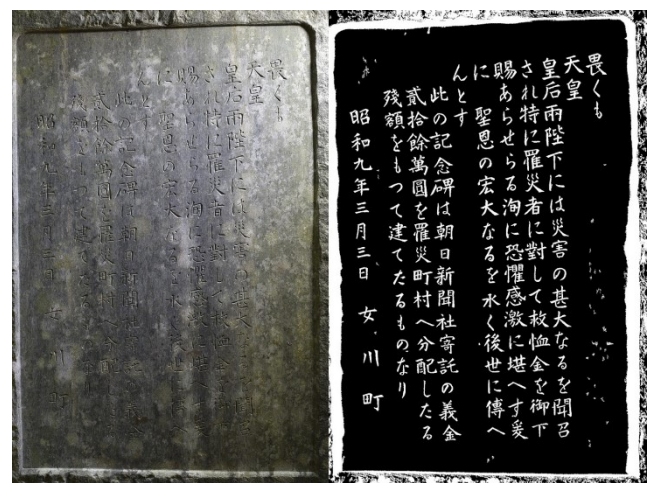 畏くも
天皇
皇后両陛下には災害の甚大なるを聞召
され特に罹災者に對して救恤金を御下
賜あらせらる洵に恐懼感激に堪へす爰
に　聖恩の宏大なるを永く後世に傳へ
んとす
此の記念碑は朝日新聞社寄託の義金
貳拾餘萬圓を罹災町村へ分配したる
残額をもつて建てたるものなり
昭和九年三月三日　女川町